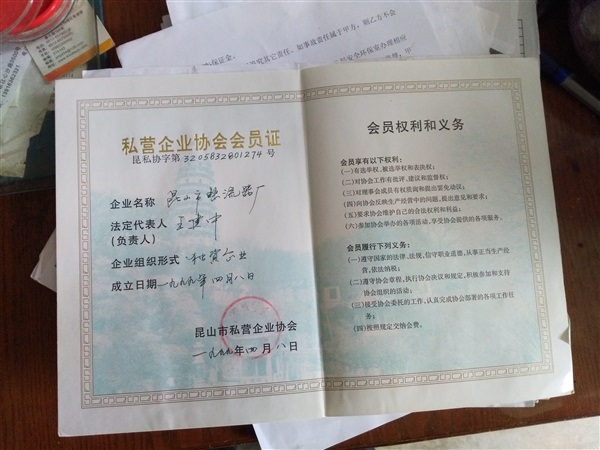 保证金。
私营企业协会会员证
昆私协字第3205832801274号
企业名称 昆山市整流器厂
法定代表人 王建中
(负责人)
企业组织形式 私资企业
成立日期 一九九九年四月八日
昆山市私营企业协会
一九九九年四月八日
会员权利和义务
会员享有以下权利:
(一)有选举权、被选举权和表决权;
(二)对协会工作有批评、建议和监督权;
(三)对理事会成员有权质询和提出罢免动议;
(四)向协会反映生产经营中的问题,提出意见和要求;
(五)要求协会维护自己的合法权利和利益;
(六)参加协会举办的各项活动,享受协会提供的各项服务。
会员履行下列义务:
(一)遵守国家的法律、法规,信守职业道德,从事正当生产经
营,依法纳税;
(二)遵守协会章程,执行协会决议和规定,积极参加和支持
协会组织的活动;
(三)接受协会委托的工作,认真完成协会部署的各项工作任
务;
(四)按照规定交纳会费。